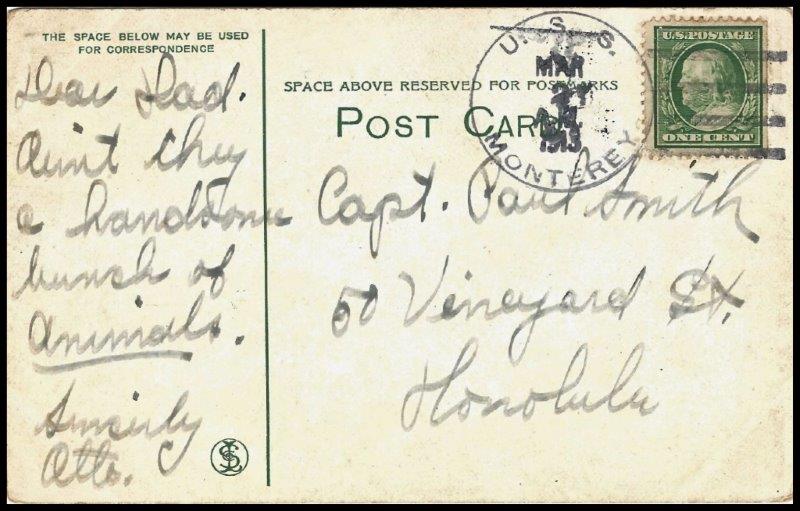 THE SPACE BELOW MAY BE USED
FOR CORRESPONDENCE
Dear Dad.
Aint they
a handsome
bunch of
Animals.
Sincirly
Otto.
SPACE ABOVE RESERVED FOR POSTMARKS
POST CARD
U. S. S.
MAR
1913
MONTEREY
U.S. POSTAGE
ONE CENT
Capt. Paul Smith
50 Vineyard St.
Honolulu